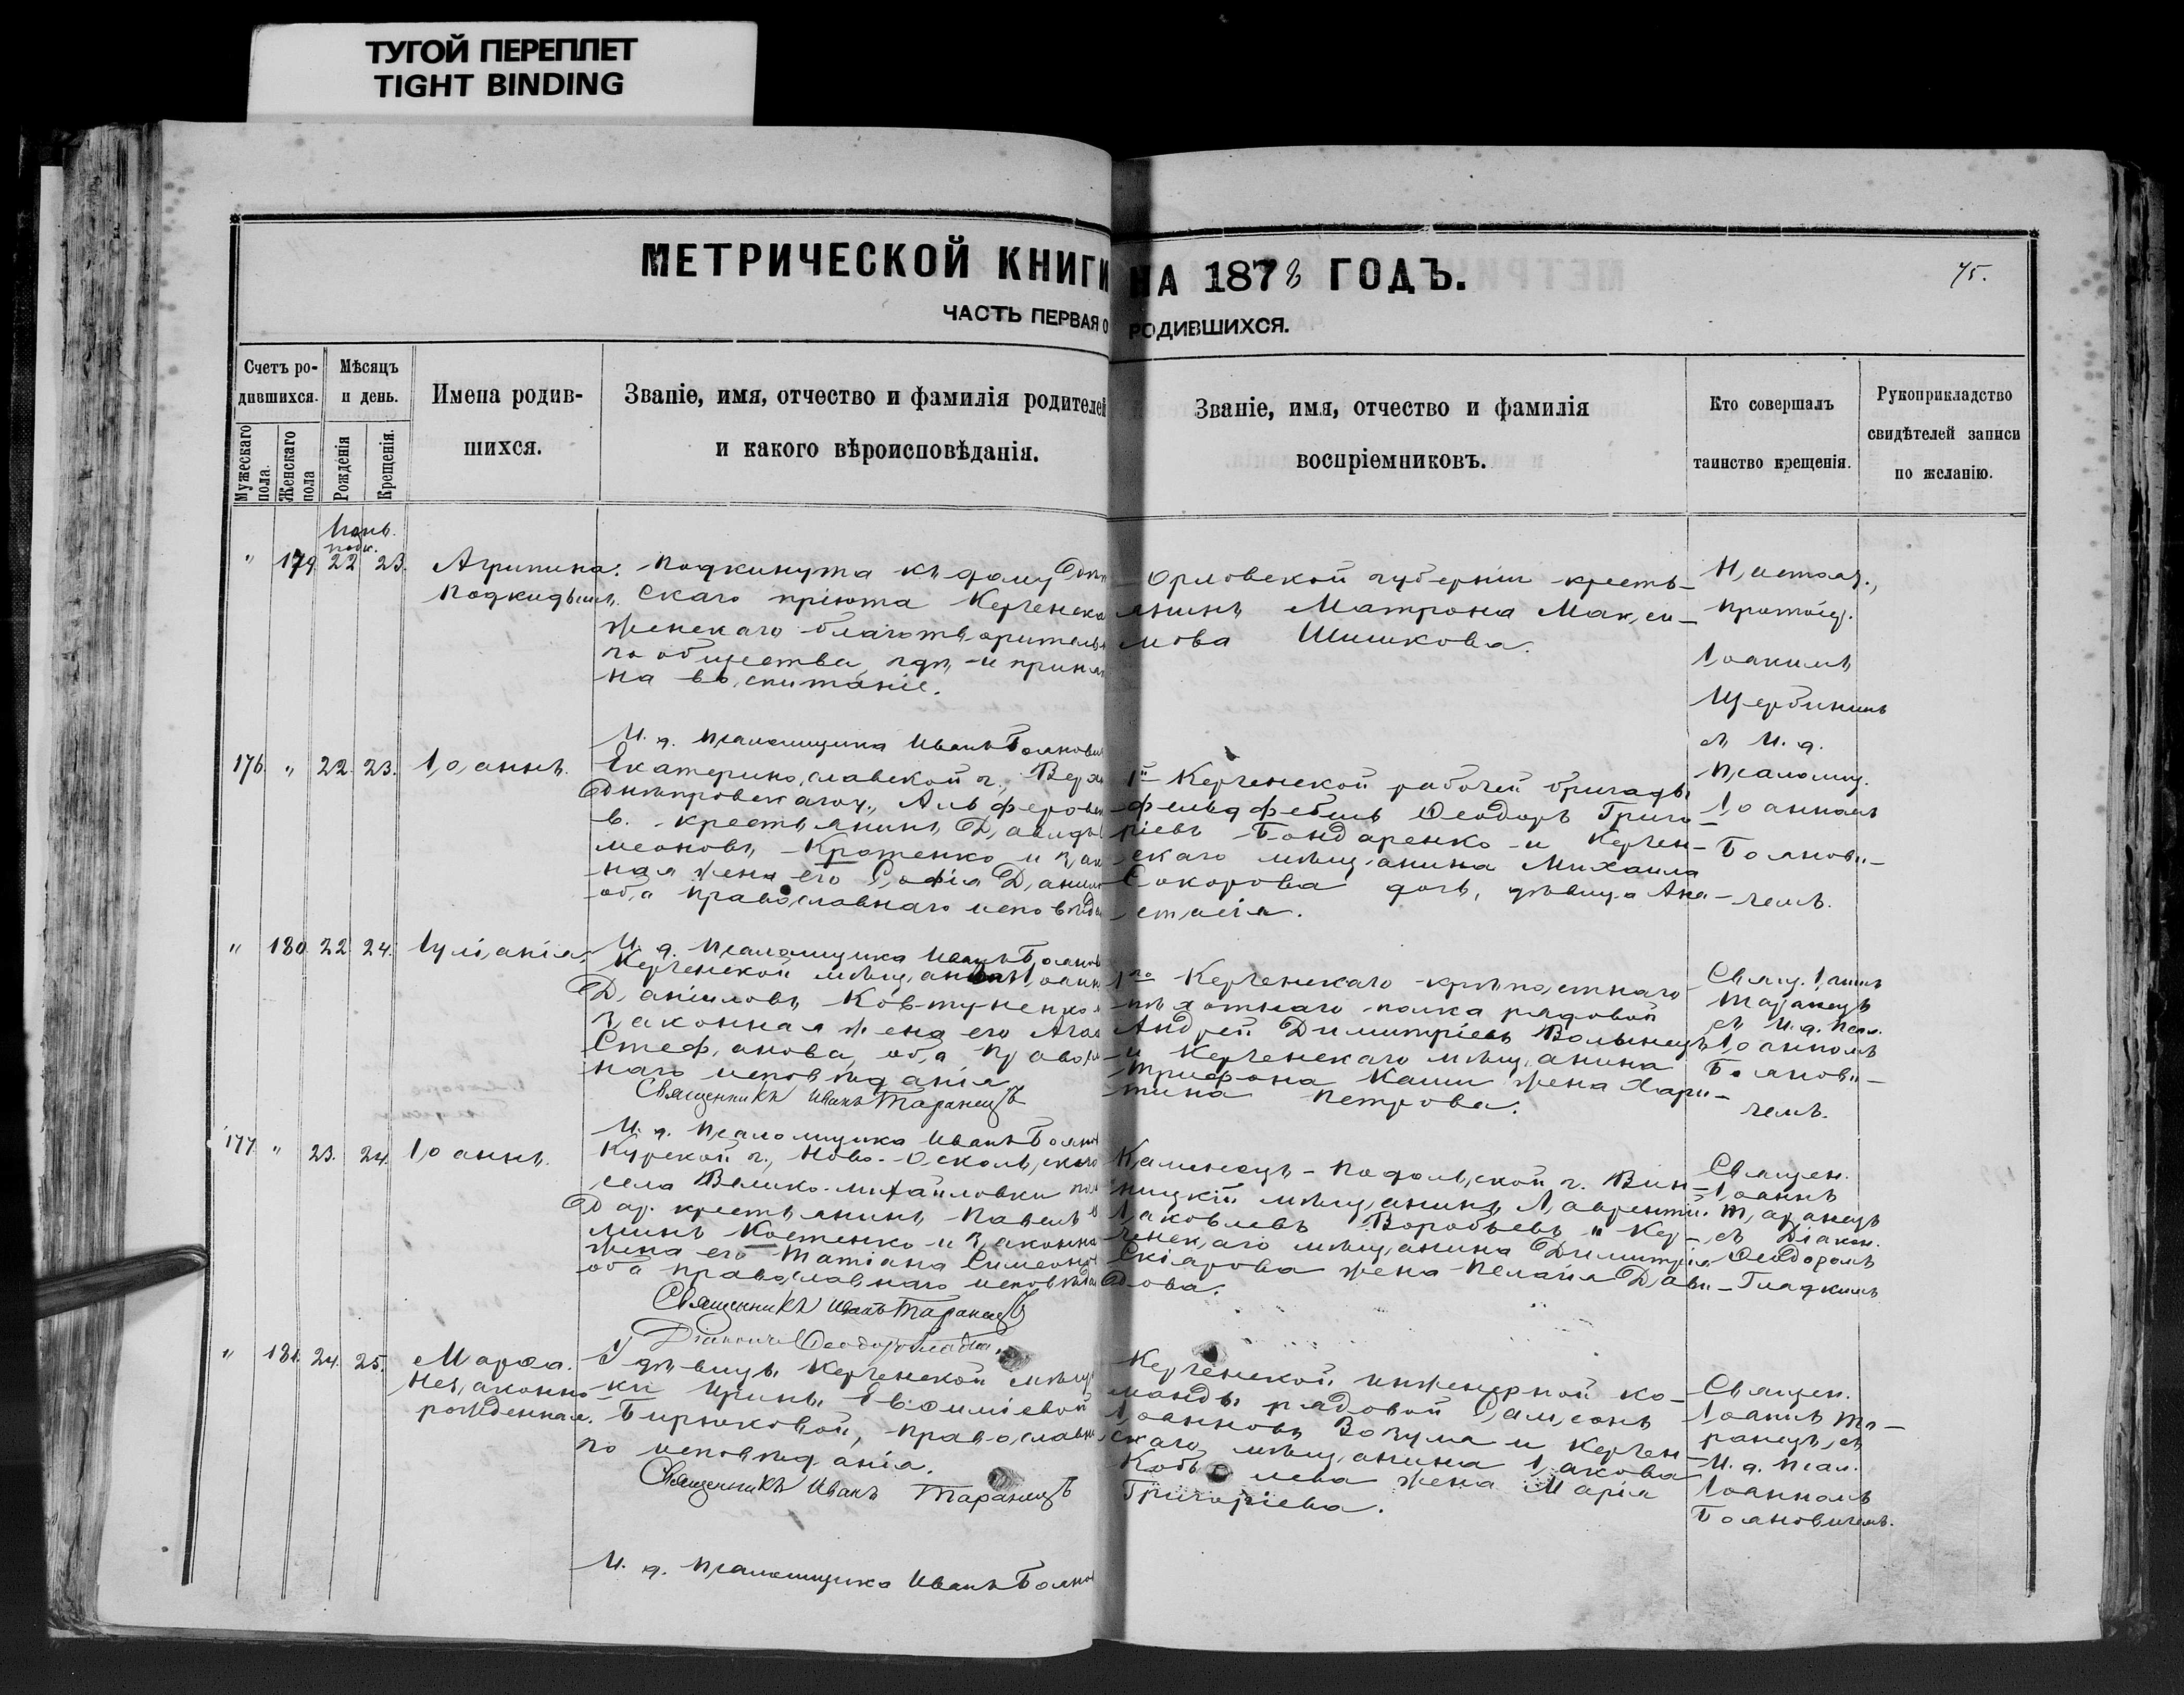 ТУГОЙ ПЕРЕПЛЕТ
TIGHT BINDING
МЕТРИЧЕСКОЙ КНИГИ НА 1878 ГОДЪ.
75.
ЧАСТЬ ПЕРВАЯ О РОДИВШИХСЯ.
Счетъ ро-
дившихся.
Мужескаго пола.
Женскаго пола
Мѣсяцъ
и день.
Рожденія
Крещенія.
Имена родив-
шихся.
Званіе, имя, отчество и фамилія родителей
и какого вѣроисповѣданія.
Званіе, имя, отчество и фамилія
воспріемниковъ.
Кто совершалъ
таинство крещенія.
Рукоприкладство
свидѣтелей записи
по желанію.
Іюнь.
подк.
" 179 22 23.
Агрипина.
Подкидышъ.
Подкинута къ дому
скаго пріюта Керченска
женскаго благотворительн
го общества, гдѣ и принята
на воспитаніе.
Орловской губерніи кресть-
янинъ Матрона Макси-
мова Шишкова.
Настоят.,
протоіер.
Іоакимъ
Щербининъ
съ И. д.
псаломщ.
Іоанномъ
Боянови-
чемъ.
И. д. Псаломщика Иванъ Боянович
176 " 22. 23.
Іоаннъ.
Екатеринославской г., Верхне
днѣпровскаго у., Алферовск
в. крестьянинъ Давидъ
меоновъ Кротенко и зак
ная жена его Софія Данил
оба православнаго исповѣдан
1й Керченской рабочей бригады
фельдфебель Ѳеодоръ Григо-
ріевъ Бондаренко и Керчен-
скаго мѣщанина Михаила
Сокорова дочь, дѣвица Ана-
стасія.
И. д. Псаломщика Иванъ Боянов
" 180 22 24.
Іуліанія.
Керченской мѣщанинъ Іоанн
Даниловъ Ковтуненко и
законная жена его Агаѳ
Стефанова, оба православ
наго исповѣданія.
Священникъ Иванъ Таранецъ
1го Керченскаго крѣпостнаго
пѣхотнаго полка рядовой
Андрей Димитріевъ Волынецъ
и Керченскаго мѣщанина
Трифона Каши жена Хари-
тина Петрова.
Свящ. Іоаннъ
Таранецъ
съ И. д. Псал.
Іоанномъ
Боянови-
чемъ.
И. д. Псаломщика Иванъ Боянов
177 " 23. 24.
Іоаннъ.
Курской г., Ново-Оскольскаго
села Велико-михайловки
Дар. крестьянинъ Павелъ
минъ Костенко и законна
жена его Татіана Симеонов
оба православнаго исповѣдан
Священникъ Иванъ Таранецъ
Діаконъ Ѳеодоръ Гладкій
Каменецъ-Подольской г. Вин-
ницкій мѣщанинъ Лаврентій
Іаковлевъ Воробьевъ и Кер-
ченскаго мѣщанина Димитрія
Скіярова жена Пелагія Дави-
дова.
Священ.
Іоаннъ
Таранецъ
съ Діакон.
Ѳеодоромъ
Гладкимъ
" 181. 24. 25.
Марѳа.
Незаконно
рожденная.
У дѣвицы Керченской мѣщан
ки Ирины Евѳиміевой
Бирюковой, православна
го исповѣданія.
Священникъ Иванъ Таранецъ
Керченской инженерной ко-
манды рядовой Самсонъ
Іоанновъ Возума и Керчен-
скаго мѣщанина Іакова
жена Марія
Григоріева.
Священ.
Іоаннъ Та-
ранецъ, съ
И. д. Псал.
Іоанномъ
Бояновичемъ.
И. д. Псаломщика Иванъ Боянов